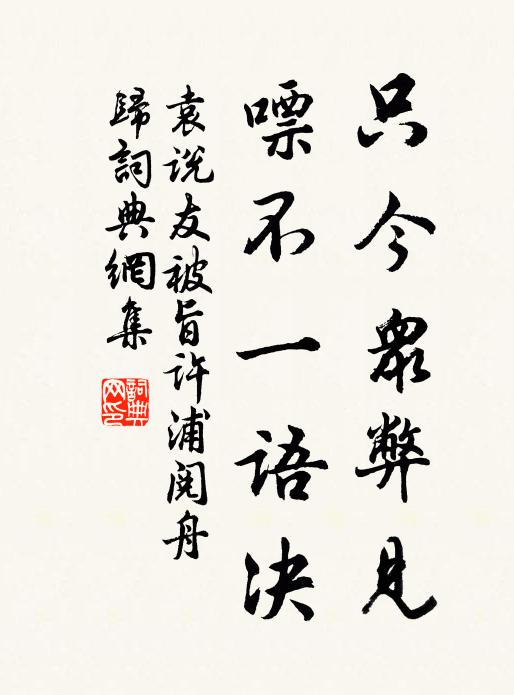 只今衆弊見
嘌不一語決
袁说友被旨许浦阅舟
歸詞典網集
詞典网印